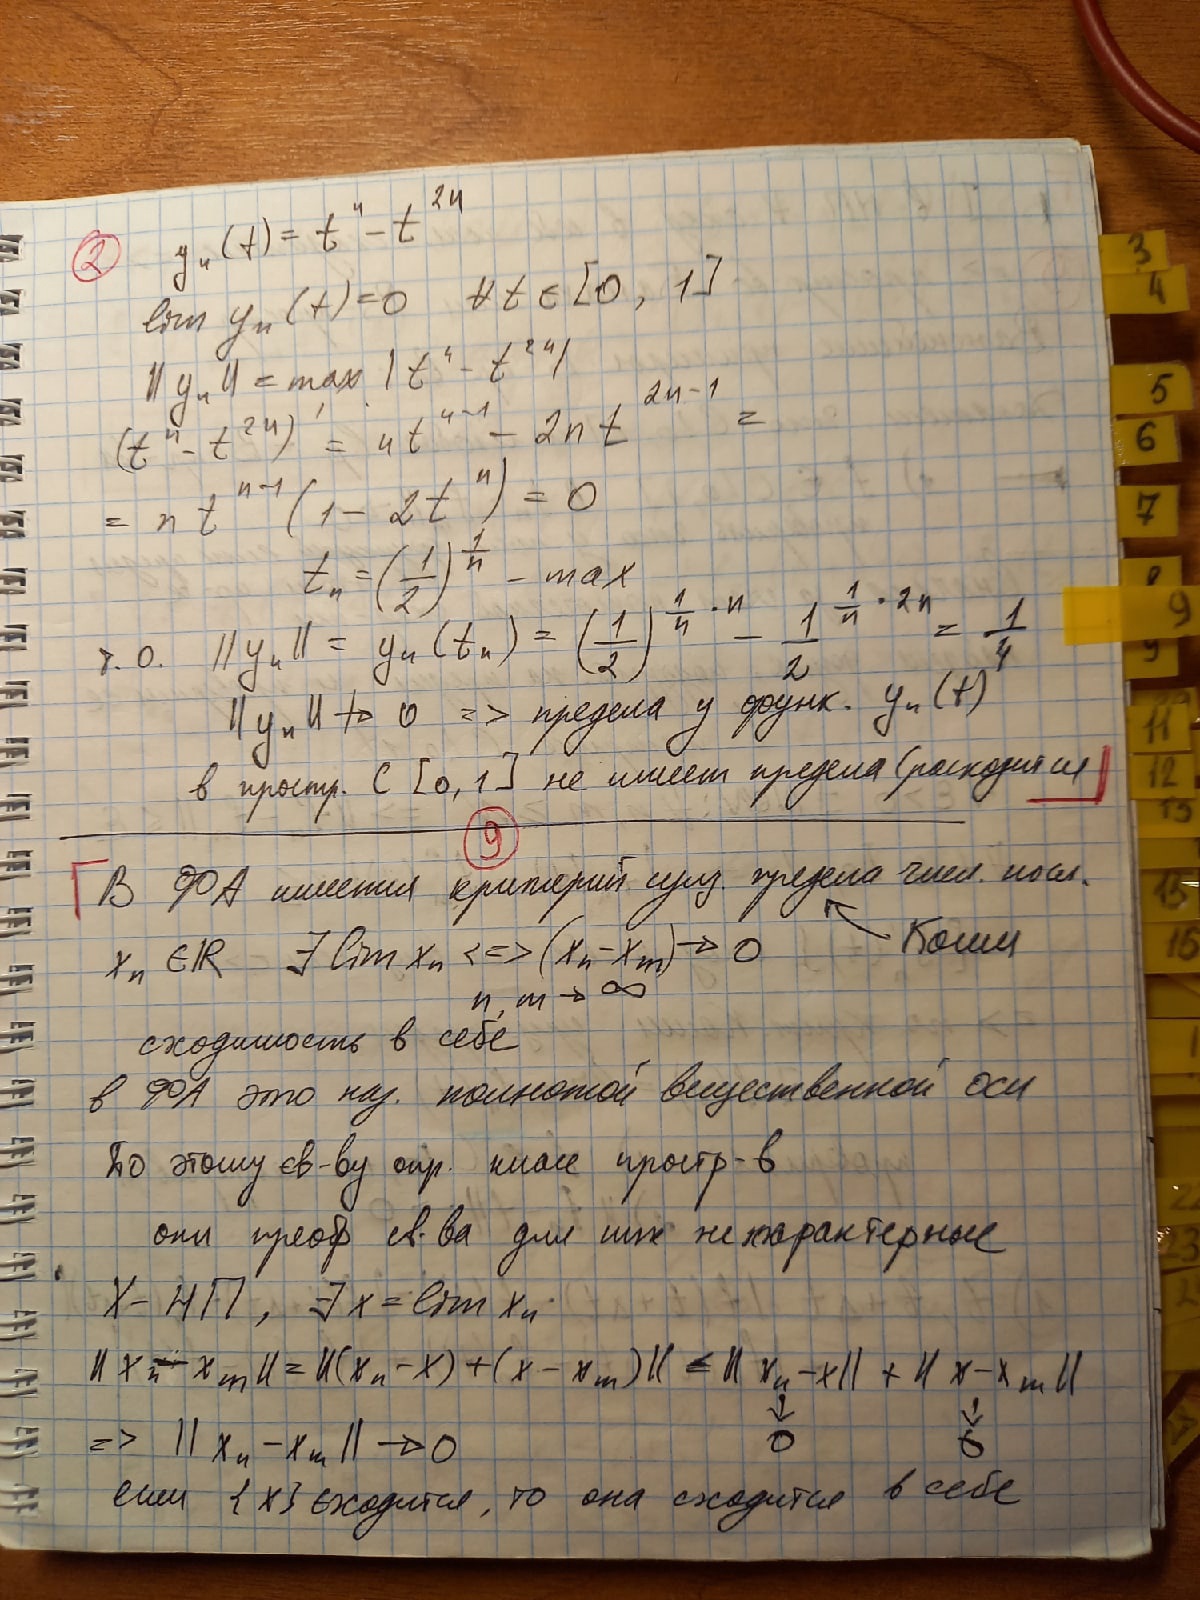 ② yₙ(t) = tⁿ - t²ⁿ
lim yₙ(t) = 0 ∀t ∈ [0, 1]
||yₙ|| = max |tⁿ - t²ⁿ|
(tⁿ - t²ⁿ)' = ntⁿ⁻¹ - 2nt²ⁿ⁻¹ =
= ntⁿ⁻¹(1 - 2tⁿ) = 0
tₙ = (1/2)^(1/n) - max
т.о. ||yₙ|| = yₙ(tₙ) = (1/2)^(1/n · n) - 1/2^(1/n · 2n) = 1/4
||yₙ|| ↛ 0 => предела у функ. yₙ(t)
в простр. C [0, 1] не имеет предела (расходится)
⑨
В ФА имеется критерий сущ. предела числ. посл.
Коши
xₙ ∈ ℝ ∃ lim xₙ <=> (xₙ - xₘ) → 0
n, m → ∞
сходимость в себе
в ФА это наз. полнотой вещественной оси
По этому св-ву опр. класс простр-в
они преобр св-ва для них не характерные
X - НП, ∃ x = lim xₙ
||xₙ - xₘ|| = ||(xₙ - x) + (x - xₘ)|| ≤ ||xₙ - x|| + ||x - xₘ||
↓ ↓
0 0
=> ||xₙ - xₘ|| → 0
если {x} сходится, то она сходится в себе
3
4
5
6
7
8
9
9
11
12
13
15
16
22
23